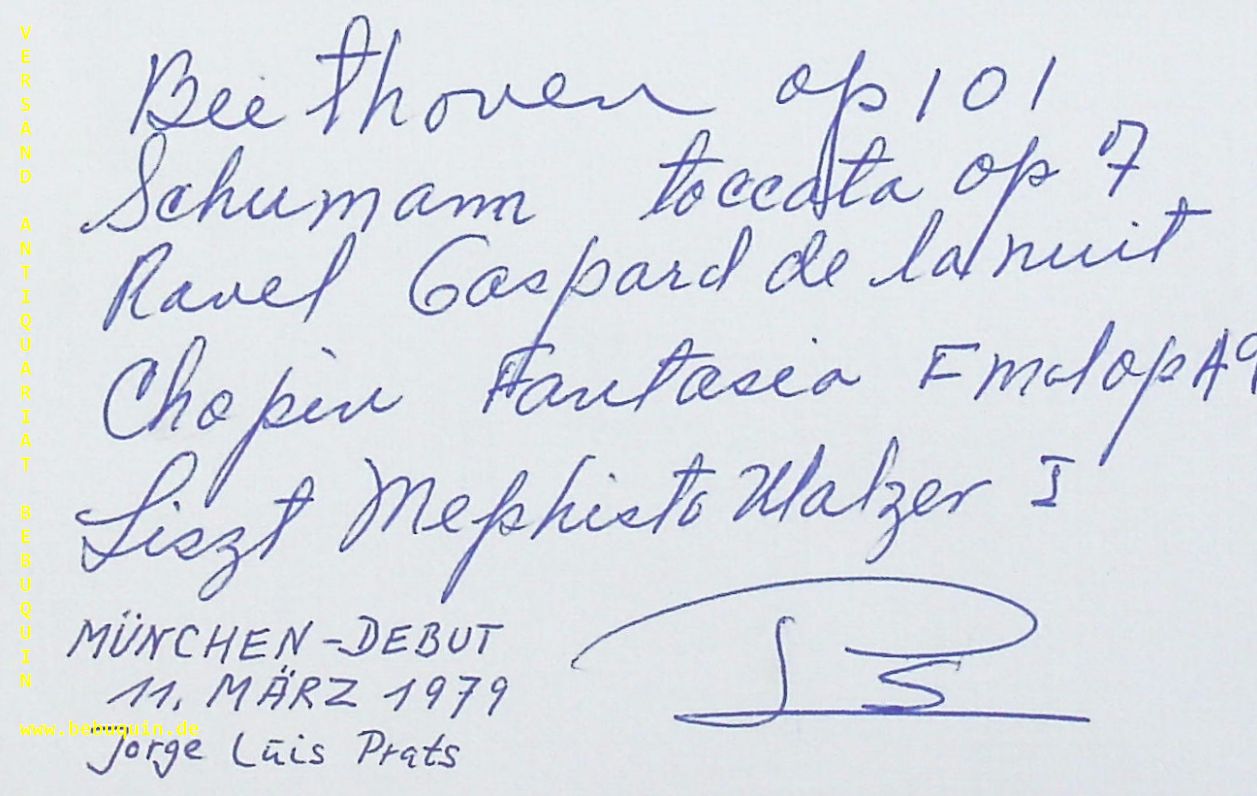 Beethoven op 101
Schumann toccata op 7
Ravel Gaspard de la nuit
Chopin Fantasia F mol op 49
Liszt Mephisto Walzer I
MÜNCHEN-DEBUT
11. MÄRZ 1979
Jorge Luis Prats
VERSAND ANTIQUARIAT BEBUQUIN
www.bebuquin.de